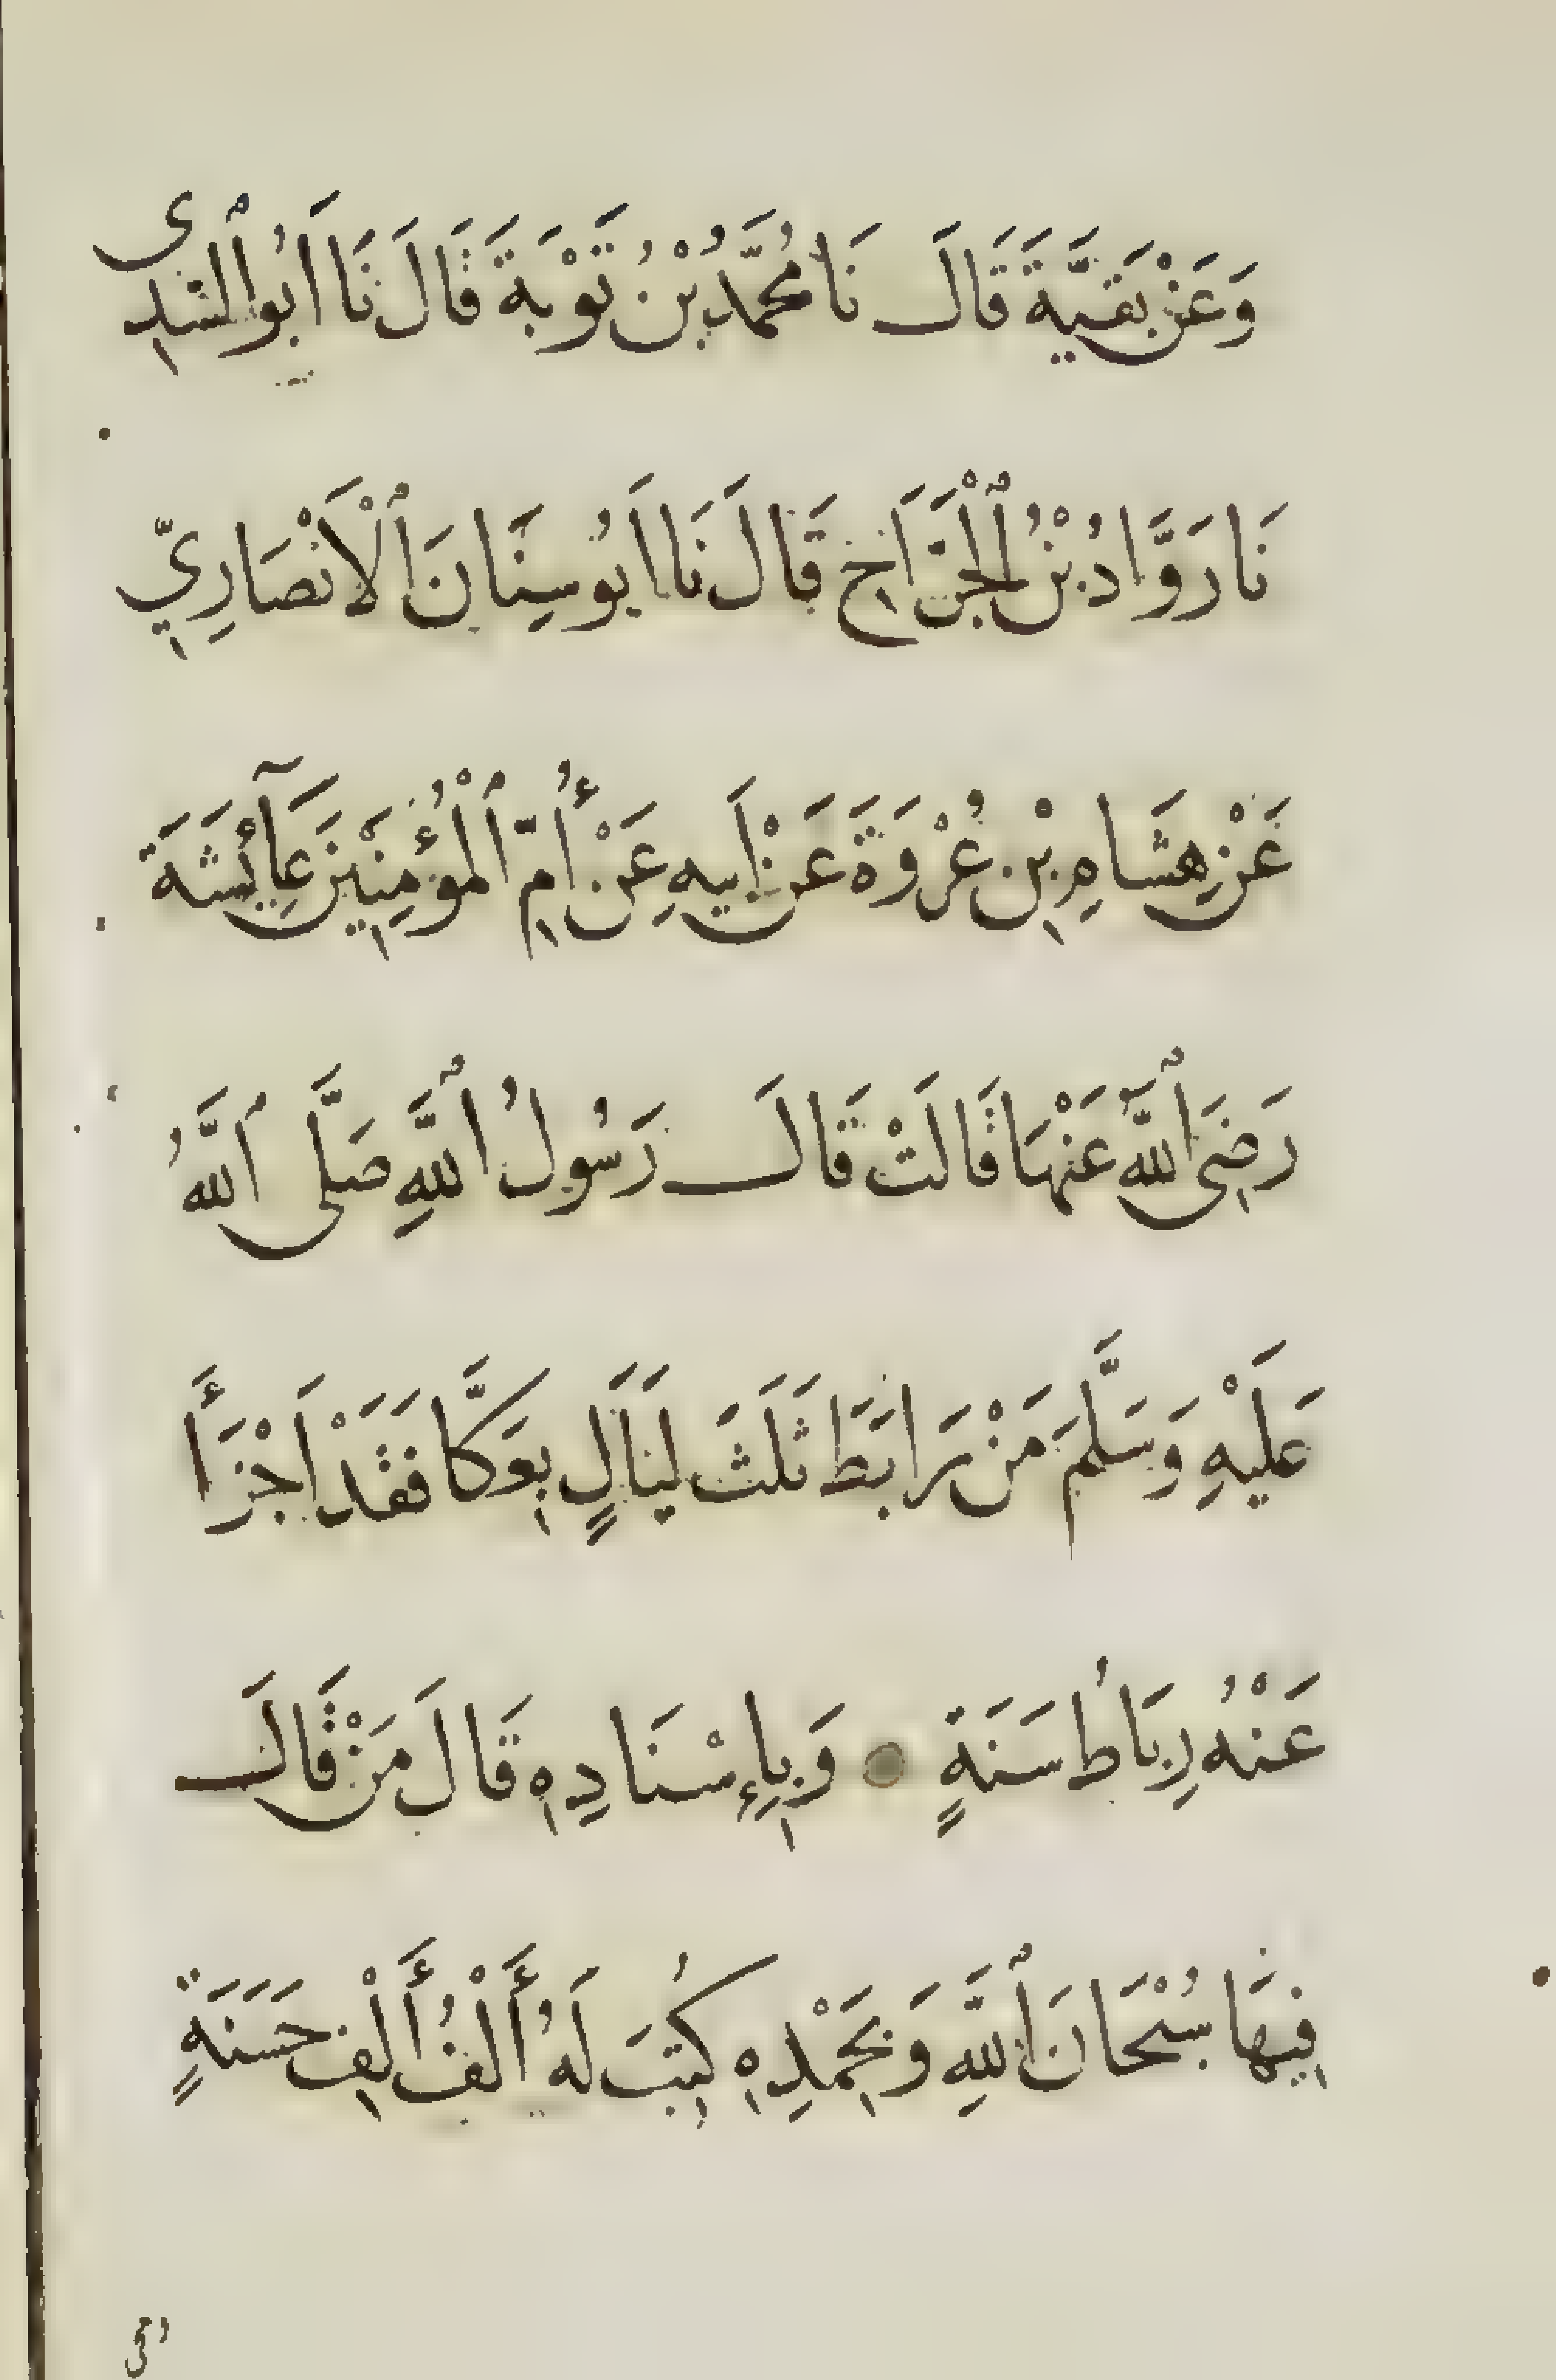 وَعَنْ بَقِيَّةَ قَالَ نَا مُحَمَّدُ بْنُ تَوْبَةَ قَالَ نَا اَبُو الشدى
نَا رَوَّادُ بْنُ ٱلْجَرَّاحِ قَالَ نَا اَبُو سِنَانَ ٱلْاَنْصَارِيّ
عَنْ هِشَامِ بْنِ عُرْوَةَ عَنْ اَبِيهِ عَنْ أُمِّ ٱلْمُؤْمِنِينَ عَآئِشَةَ
رَضِىَ ٱللّٰهُ عَنْهَا قَالَتْ قَالَ رَسُولُ ٱللَّهِ صَلَّى ٱللَّهُ
عَلَيْهِ وَسَلَّمَ مَنْ رَابَطَ ثَلَثَ لَيَالٍ بِعَوَكَّا فَقَدْ اَجْزَأَ
عَنْهُ رِبَاطُ سَنَةٍ وَبِإِسْنَادِهِ قَالَ مَنْ قَالَ
فِيهَا سُبْحَانَ ٱللَّهِ وَبِحَمْدِهِ كُتِبَ لَهُ أَلْفُ أَلْفِ حَسَنَةٍ